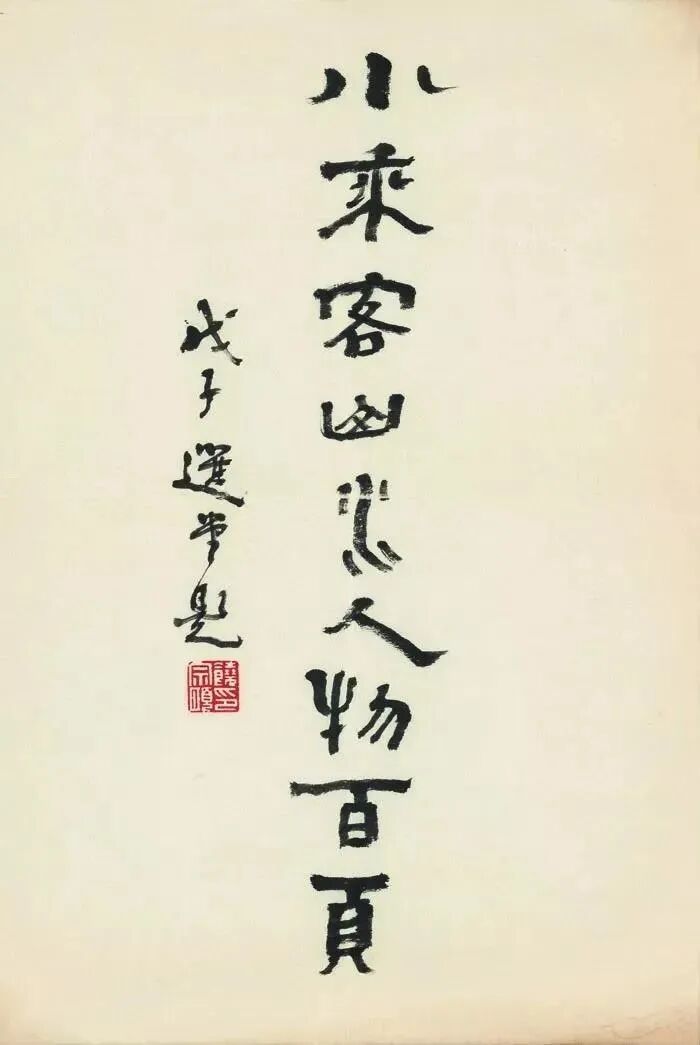 小乘客山水人物百頁
戊子選堂題
饒印宗頤